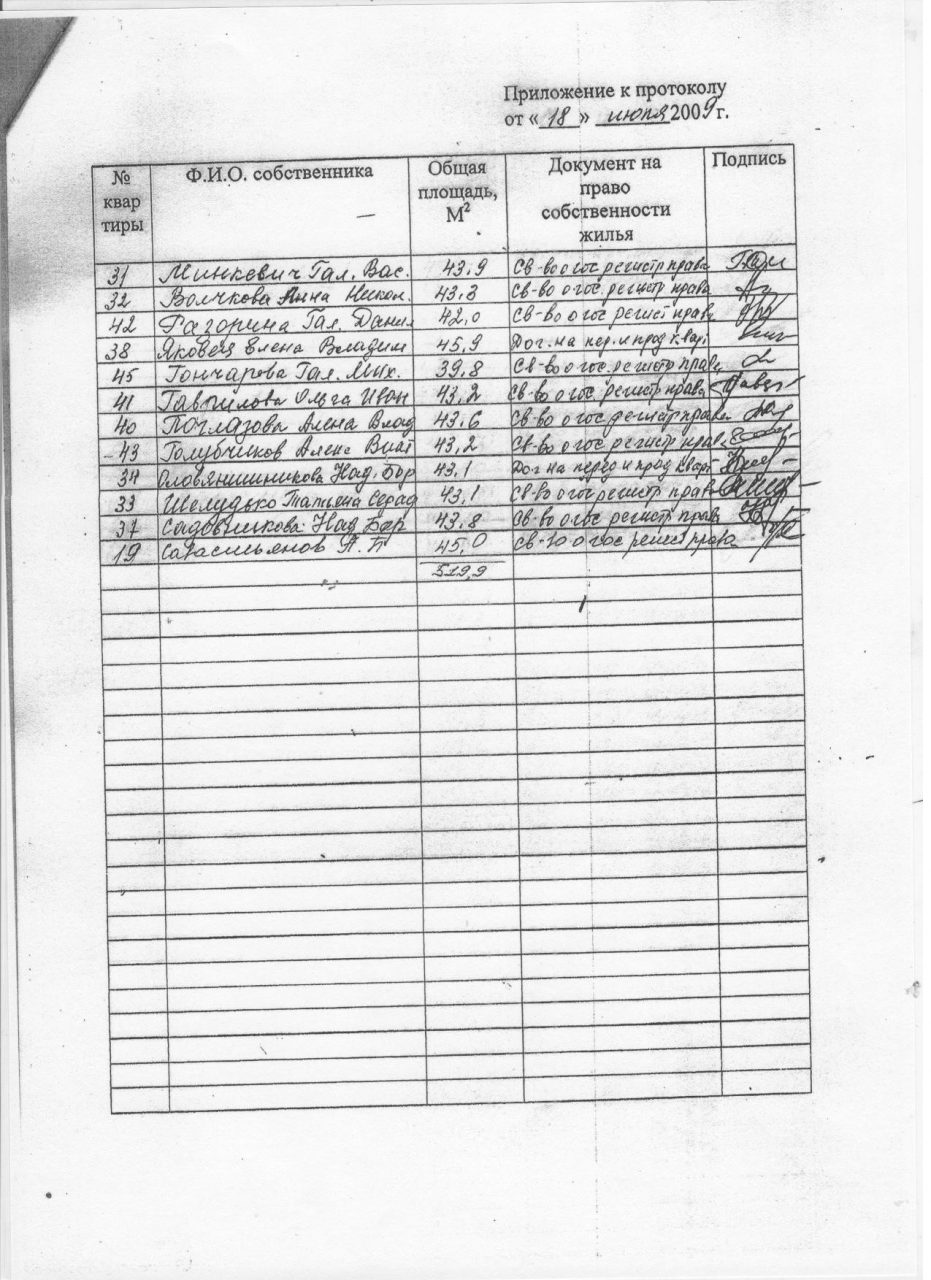 Приложение к протоколу
от «18» июня 2009 г.
№ квартиры Ф.И.О. собственника Общая площадь, М² Документ на право собственности жилья Подпись
31 Минкевич Гал. Вас. 43,9 Св-во о гос регистр права
32 Волчкова Анна Никол. 43,3 Св-во о гос. регистр права
42 Гал. Данил 42,0 Св-во о гос регист права
38 Яковец Елена Владим 45,9 Дог. на пер. и прод кварт
45 Гончарова Гал. Мих. 39,8 Св-во о гос. регистр права
41 Гаврилова Ольга Иван 43,2 Св-во о гос. регистр права
40 Поглазова Алена Влад 43,6 Св-во о гос регистр права
43 Голубчиков Алекс Вит 43,2 Св-во о гос регистр права
34 Над. Бор 43,1 Дог на перед и прод кварт
33 Шелудько Татьяна 43,1 Св-во о гос регистр права
37 Садовникова Над Бор 43,8 Св-во о гос регистр права
19 45,0 Св-во о гос регист права
519,9